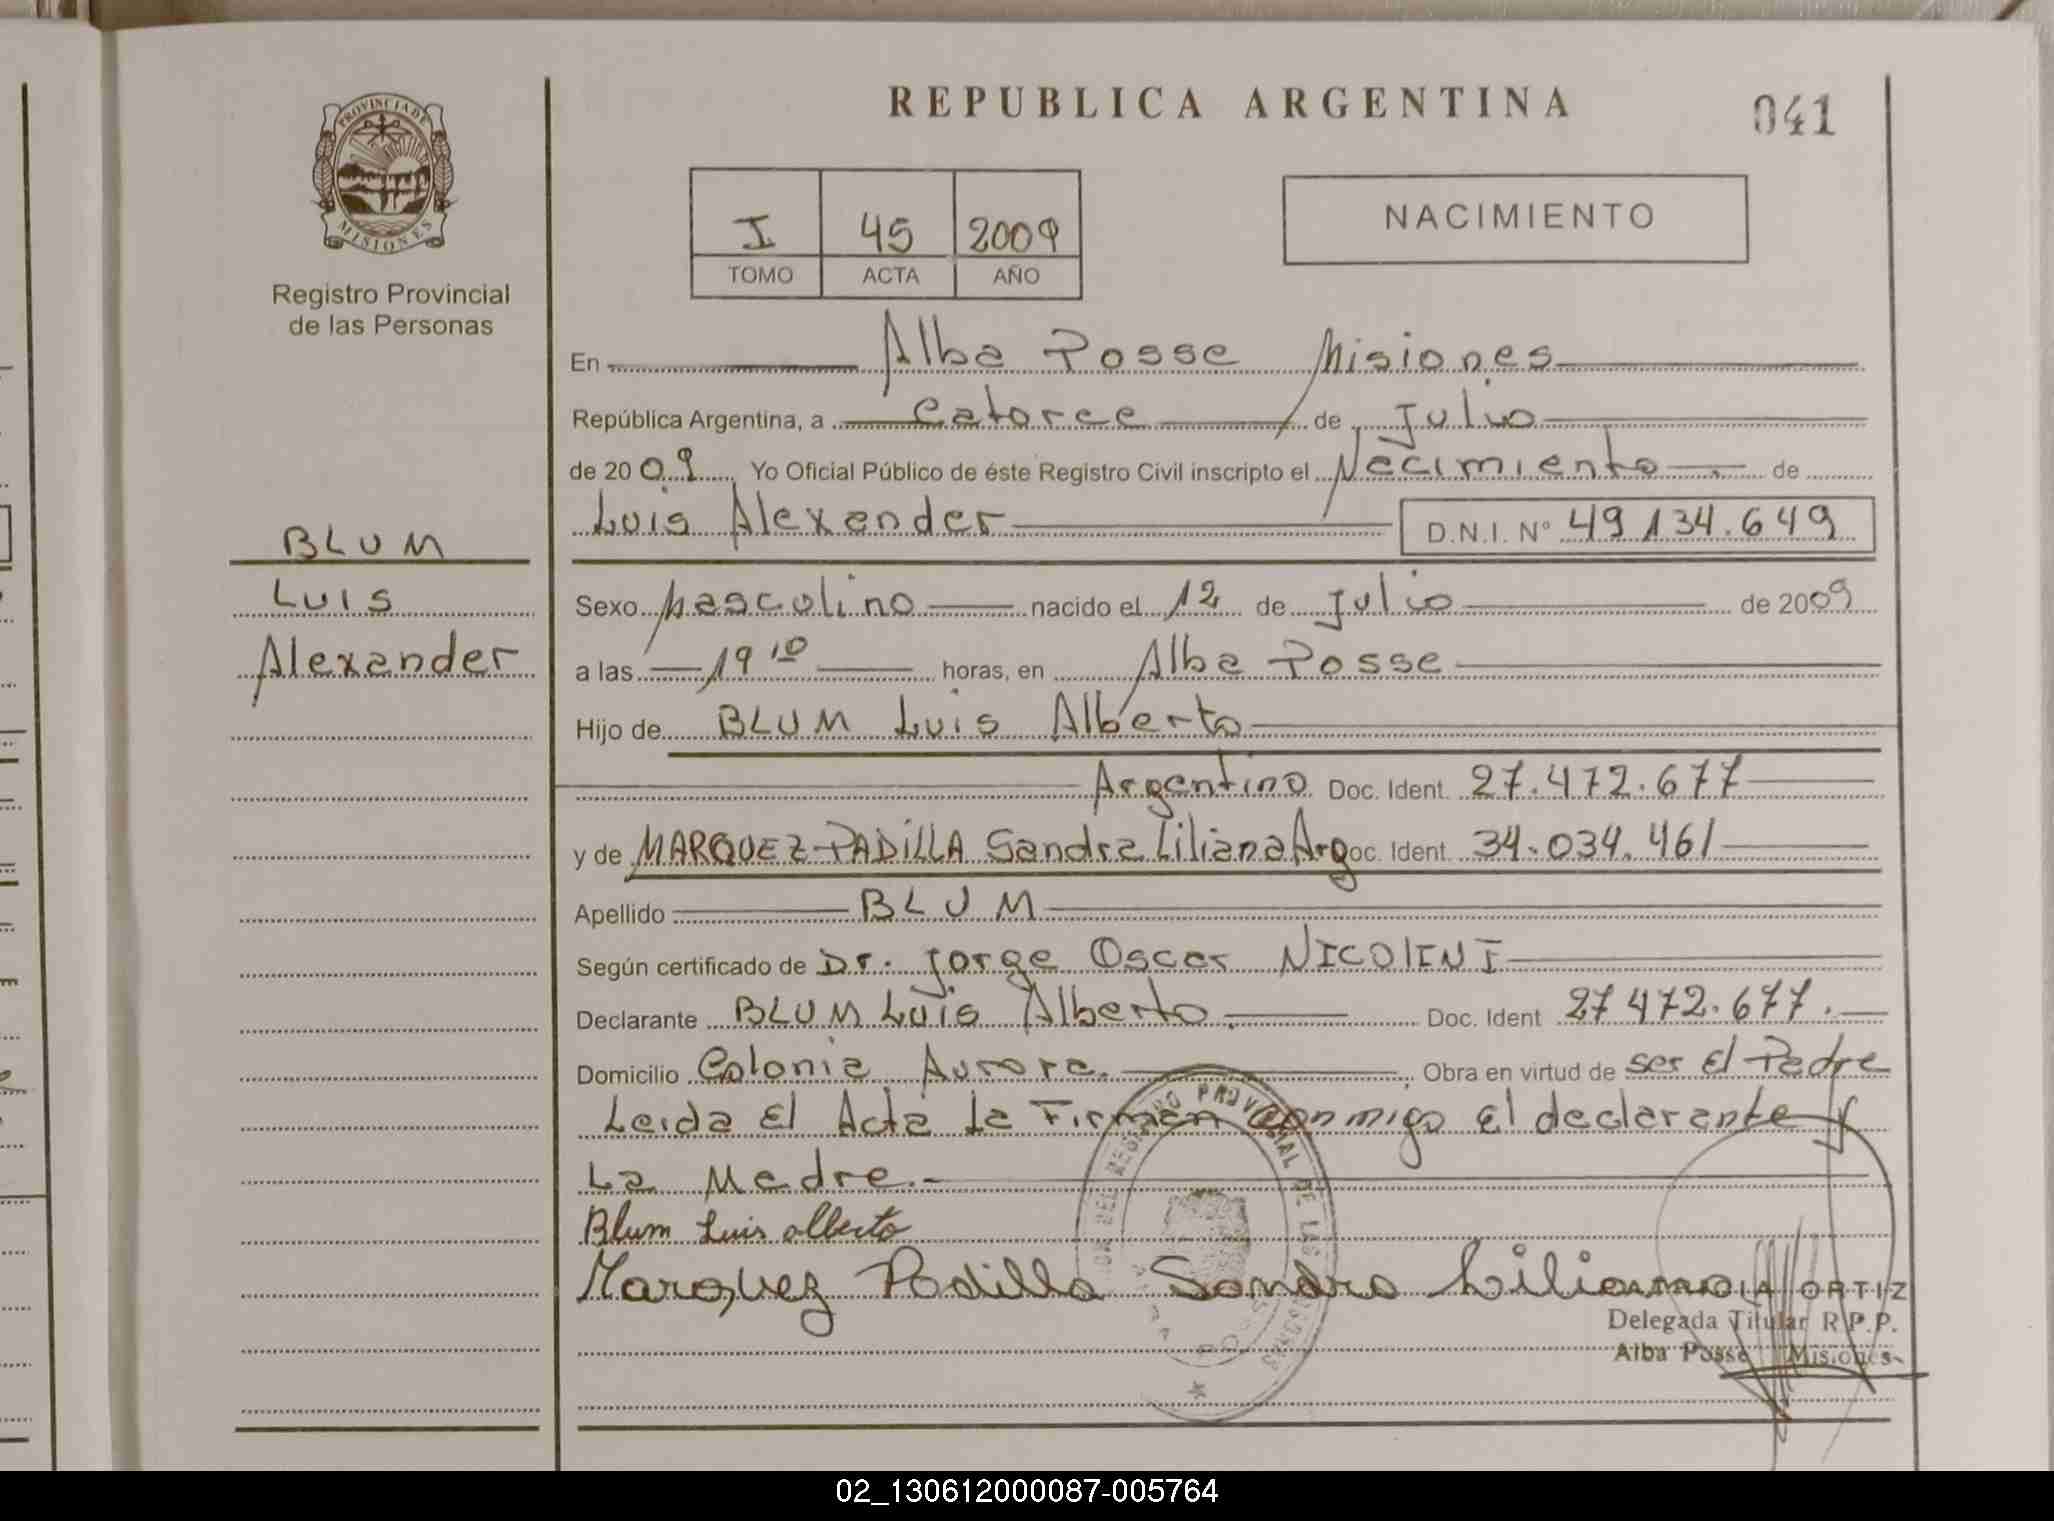 REPUBLICA ARGENTINA
041
PROVINCIA DE
MISIONES
Registro Provincial
de las Personas
I 45 2009
TOMO ACTA AÑO
NACIMIENTO
BLUM
LUIS
Alexander
En Alba Posse Misiones
República Argentina, a Catorce de Julio
de 2009 Yo Oficial Público de éste Registro Civil inscripto el Nacimiento de
Luis Alexander D.N.I. Nº 49134.649
Sexo Masculino nacido el 12 de Julio de 2009
a las 19 10 horas, en Alba Posse
Hijo de BLUM Luis Alberto
Argentino Doc. Ident. 27.472.677
y de MARQUEZ-PADILLA Sandra Liliana Arg Doc. Ident. 34.034.461
Apellido BLUM
Según certificado de Dr. Jorge Oscar NICOLINI
Declarante BLUM Luis Alberto. Doc. Ident 27472.677.
Domicilio Colonia Aurora. Obra en virtud de ser El Padre
Leida El Acta La Firman conmigo El declarante y
La Madre.-
Blum Luis alberto
Marquez Padilla Sandra Liliana
ORTIZ
Delegada Titular R.P.P.
Alba Posse Misiones
02_130612000087-005764